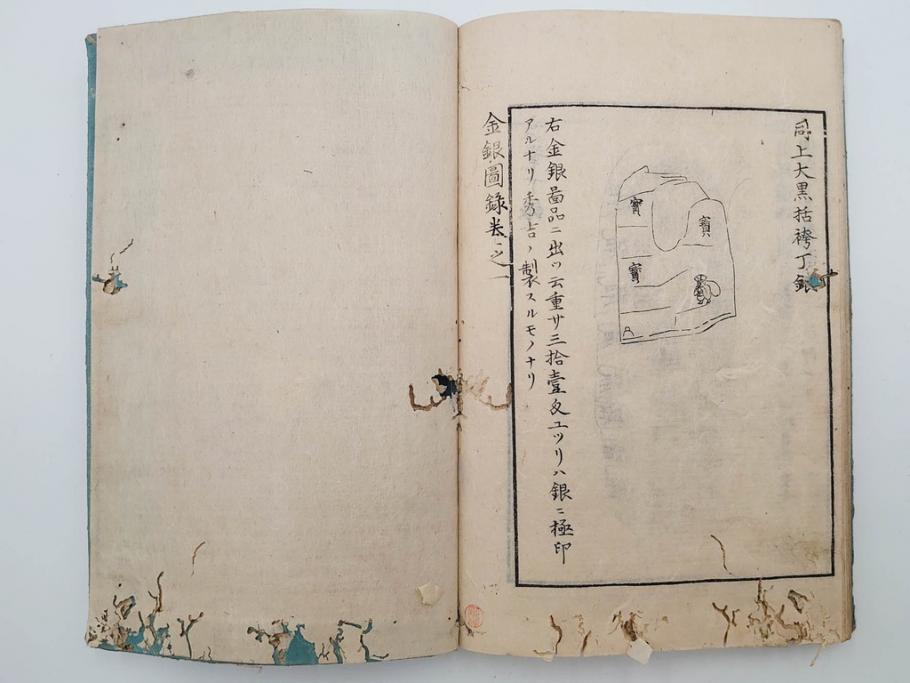 同上大黒括袴丁銀
寳
寳
寳
右金銀啚品ニ出ツ云重サ三拾壹匁ユツリハ銀ニ極印
アルナリ秀吉ノ製スルモノナリ
金銀圖録卷之一